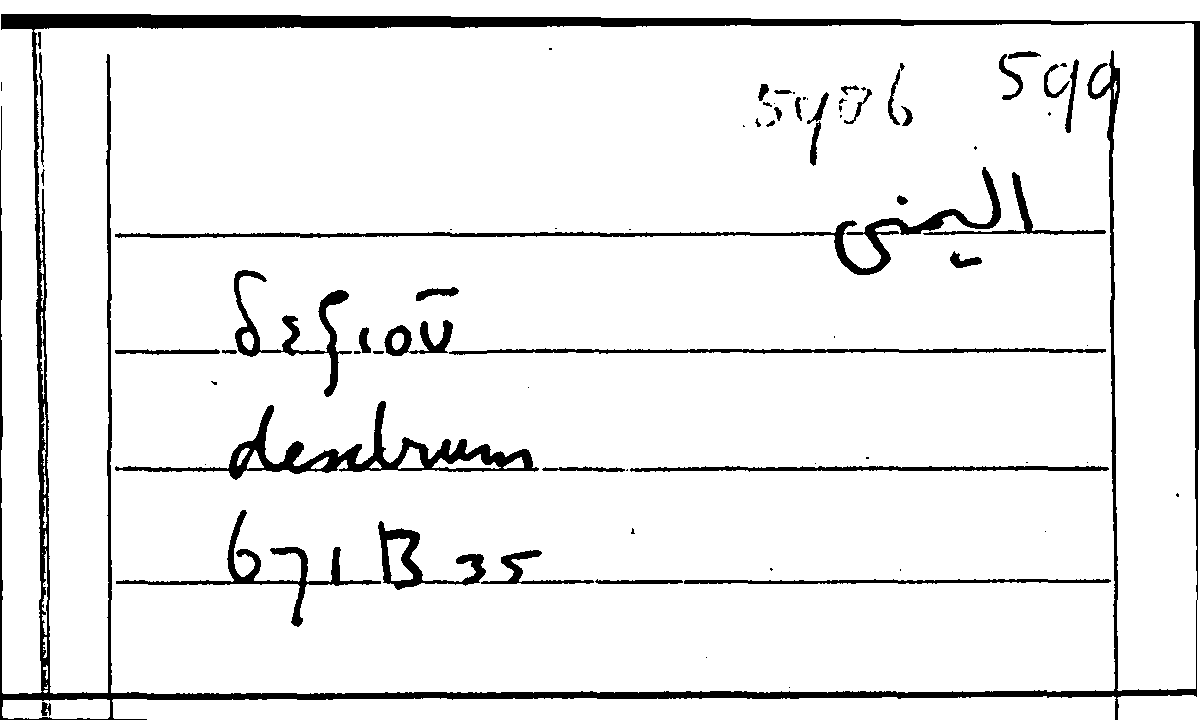 5406 599
اليمنى
δεξιοῦ
dextrum
671 B 35